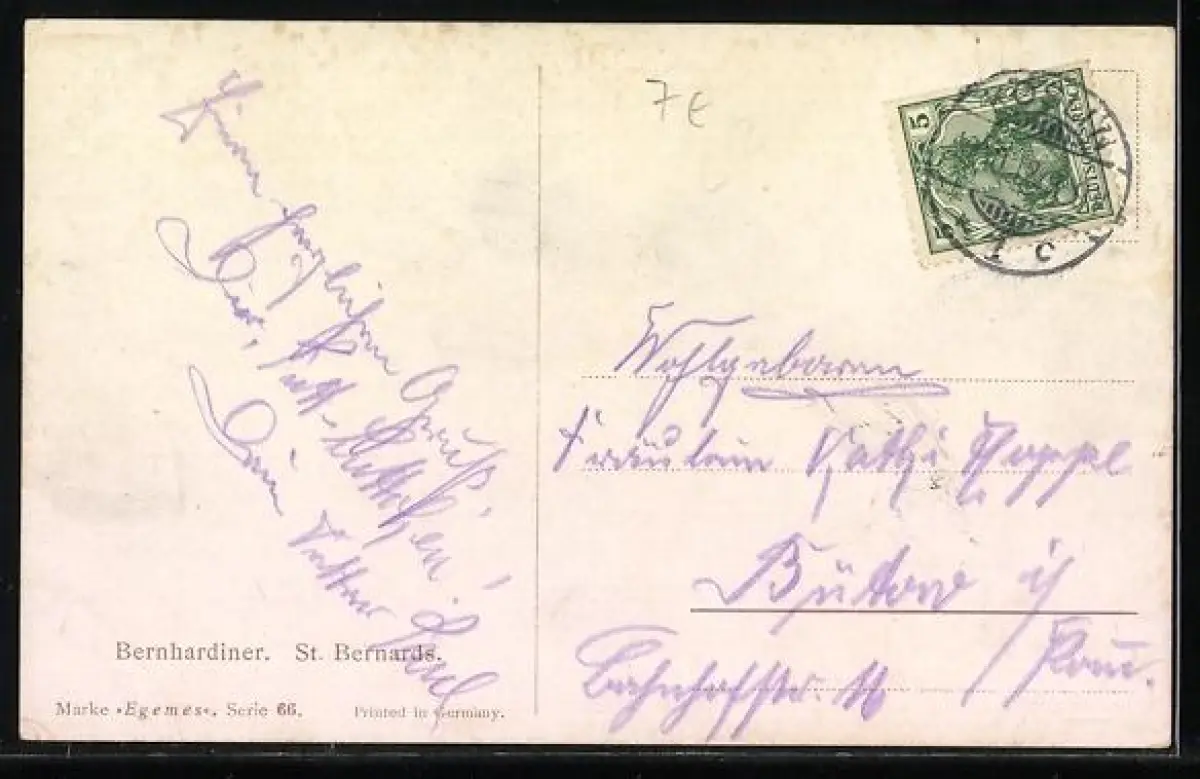 Einen herzlichen Gruß,
Dir,
Dein Vetter Paul
Bernhardiner. St. Bernards.
Marke »Egemes«, Serie 66.
Printed in Germany.
7€
5
Wohlgeboren
Fräulein Käthi
Bütow i/
Pom.
Bahnhofstr.